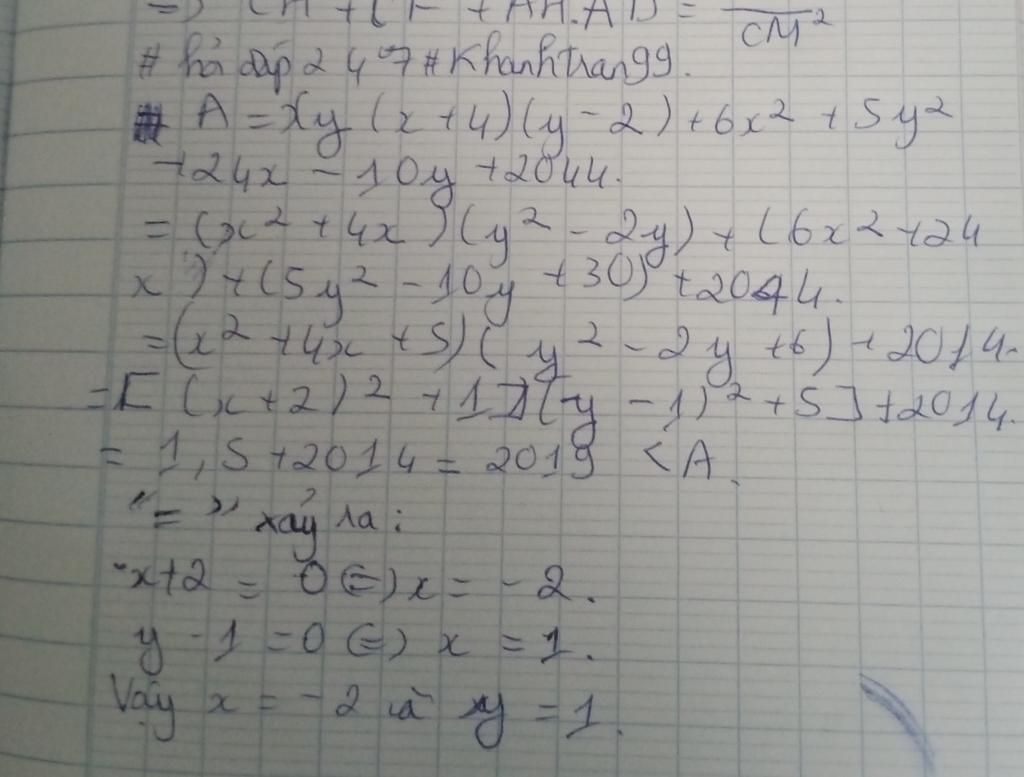 CM²
# hỏi đáp 2 4 7 # Khanhtran99.
A = xy (x + 4) (y - 2) + 6x² + 5y²
+ 24x - 10y + 2044.
= (x² + 4x) (y² - 2y) + (6x² + 24
x) + (5y² - 10y + 30) + 2044.
= (x² + 4x + 5) (y² - 2y + 6) + 2014.
= [(x + 2)² + 1] [(y - 1)² + 5] + 2014.
= 1, 5 + 2014 = 2019 < A.
" = " xảy ra :
x + 2 = 0 (=) x = - 2.
y - 1 = 0 (=) x = 1.
Vậy x = - 2 và y = 1.